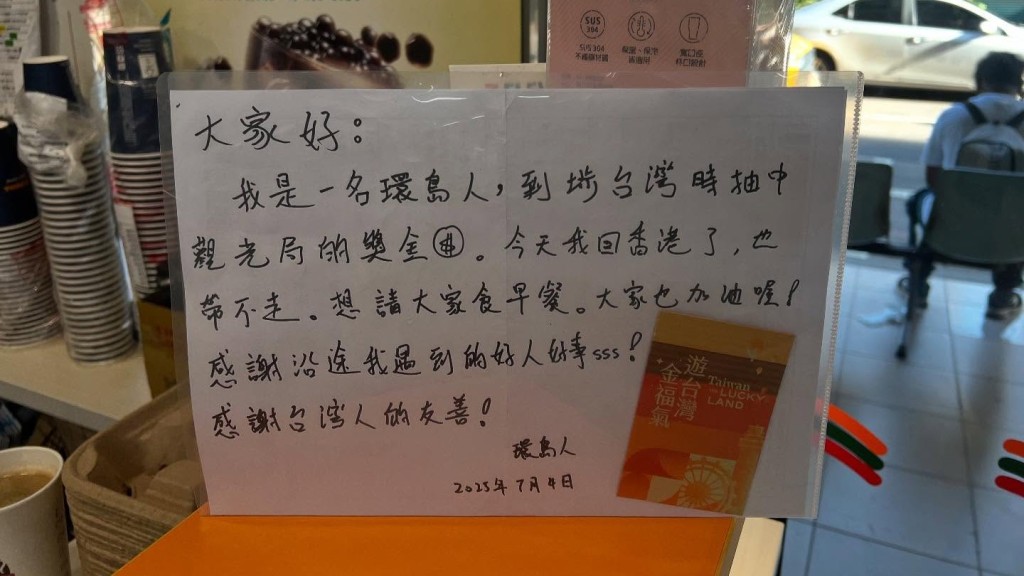 SUS
304
SUS 304
大家好：
我是一名環島人，到埗台灣時抽中
觀光局的獎金🀫。今天我回香港了，也
帶不走。想請大家食早餐。大家也加油喔！
感謝沿途我遇到的好人好事sss！
感謝台灣人的友善！
環島人
2025年7月4日
遊台灣
金福氣
Taiwan
LUCKY
LAND